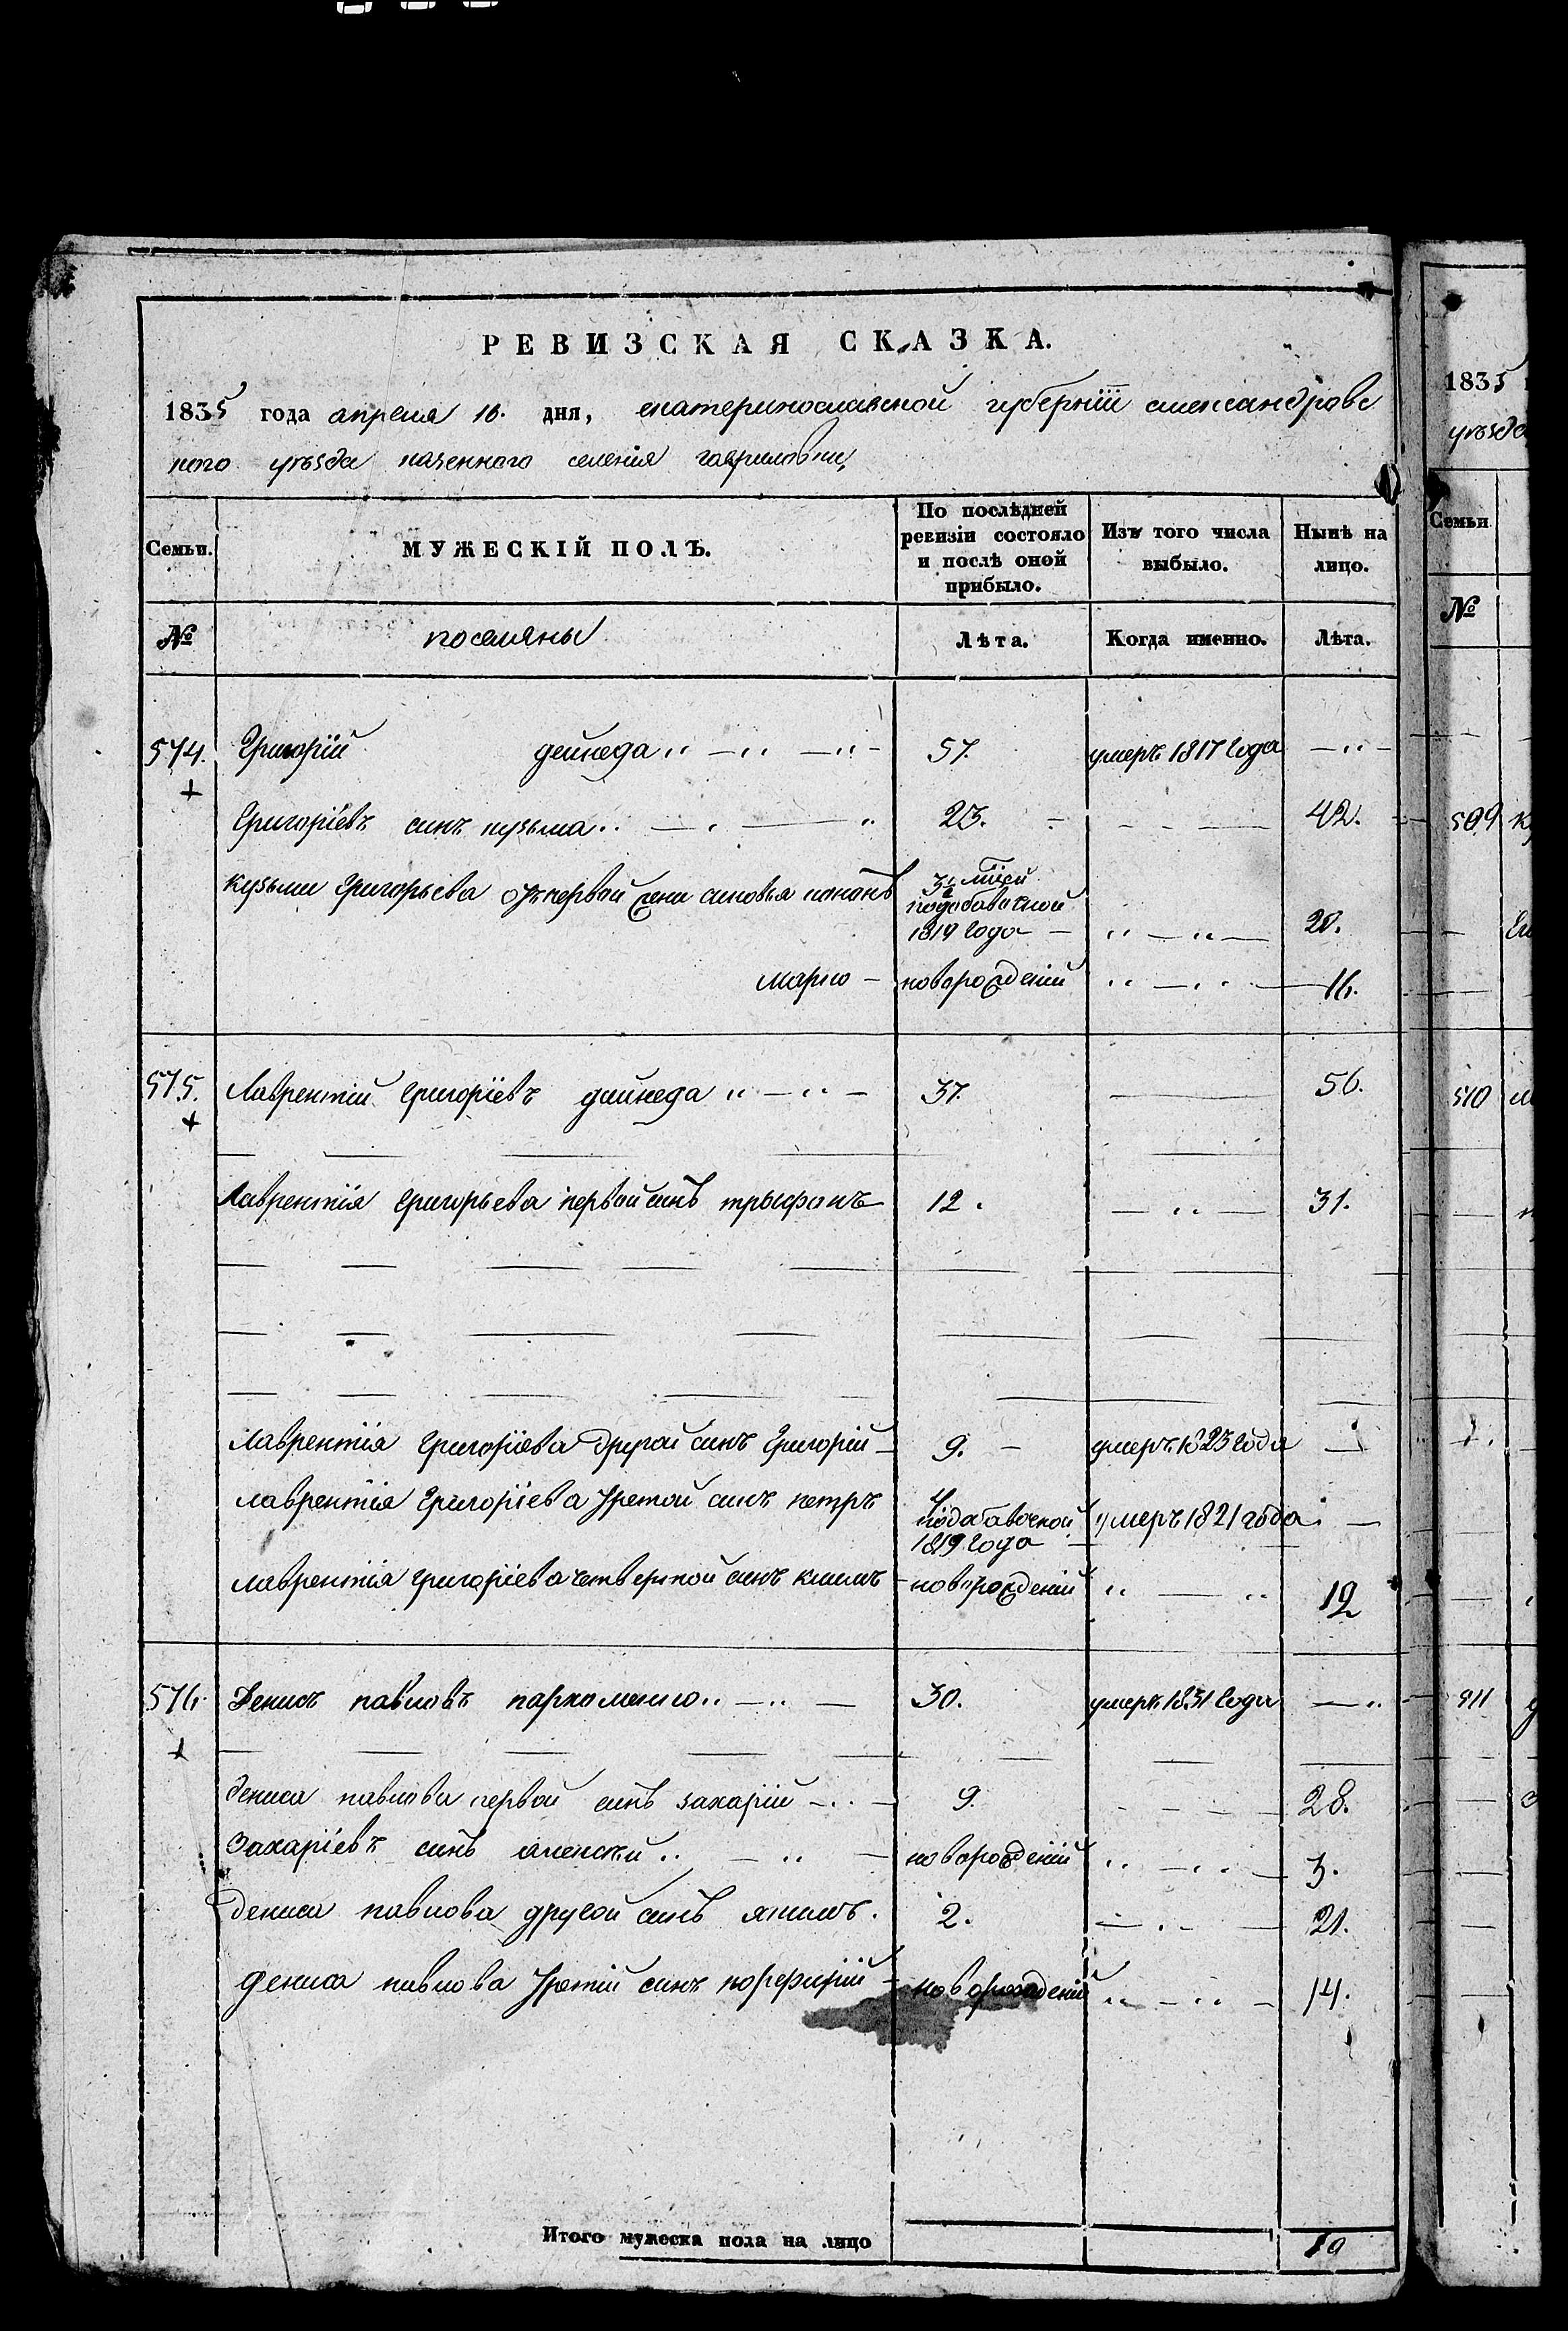 РЕВИЗСКАЯ СКАЗКА.
1835 года апреля 10. дня, екатеринославской губернїи александровс
кого уѣзда казенного селенїя гавриловки,
Семьи. МУЖЕСКІЙ ПОЛЪ. По послѣдней ревизіи состояло и послѣ оной прибыло. Изъ того числа выбыло. Нынѣ на лицо.
№ поселяны Лѣта. Когда именно. Лѣта.
574. Григорїй дейнеда 57. умеръ 1817 года
Григорїевъ синъ кузьма 23. 42.
кузьми Григорьева отъ первой жени синовья кононъ 3х мїсей подобавочной 1819 года 20.
марко новорожденїй 16.
575. Лаврентїй Григорїевъ дейнеда 37. 56.
Лаврентїя Григорьева первой синъ трыфонъ 12. 31.
Лаврентїя Григорїева другой синъ Григорїй 9. умеръ 1823 года
лаврентїя Григорїева третой синъ петръ 4 подобавочной 1819 года умеръ 1821 года
лаврентїя григорїева четвертой синъ климъ новорожденїй 12
576. Денисъ павловъ пархоменко 30. умеръ 1831 года
дениса павлова первой синъ захарїй 9. 28.
Захарїевъ синъ алексїй новорожденїй 3.
дениса павлова другой синъ якимъ. 2. 21.
дениса павлова третїй синъ порфирїй новорожденїй 14.
Итого мужеска пола на лицо 10
1835
уѣзда
Семьи
№
509
510
511